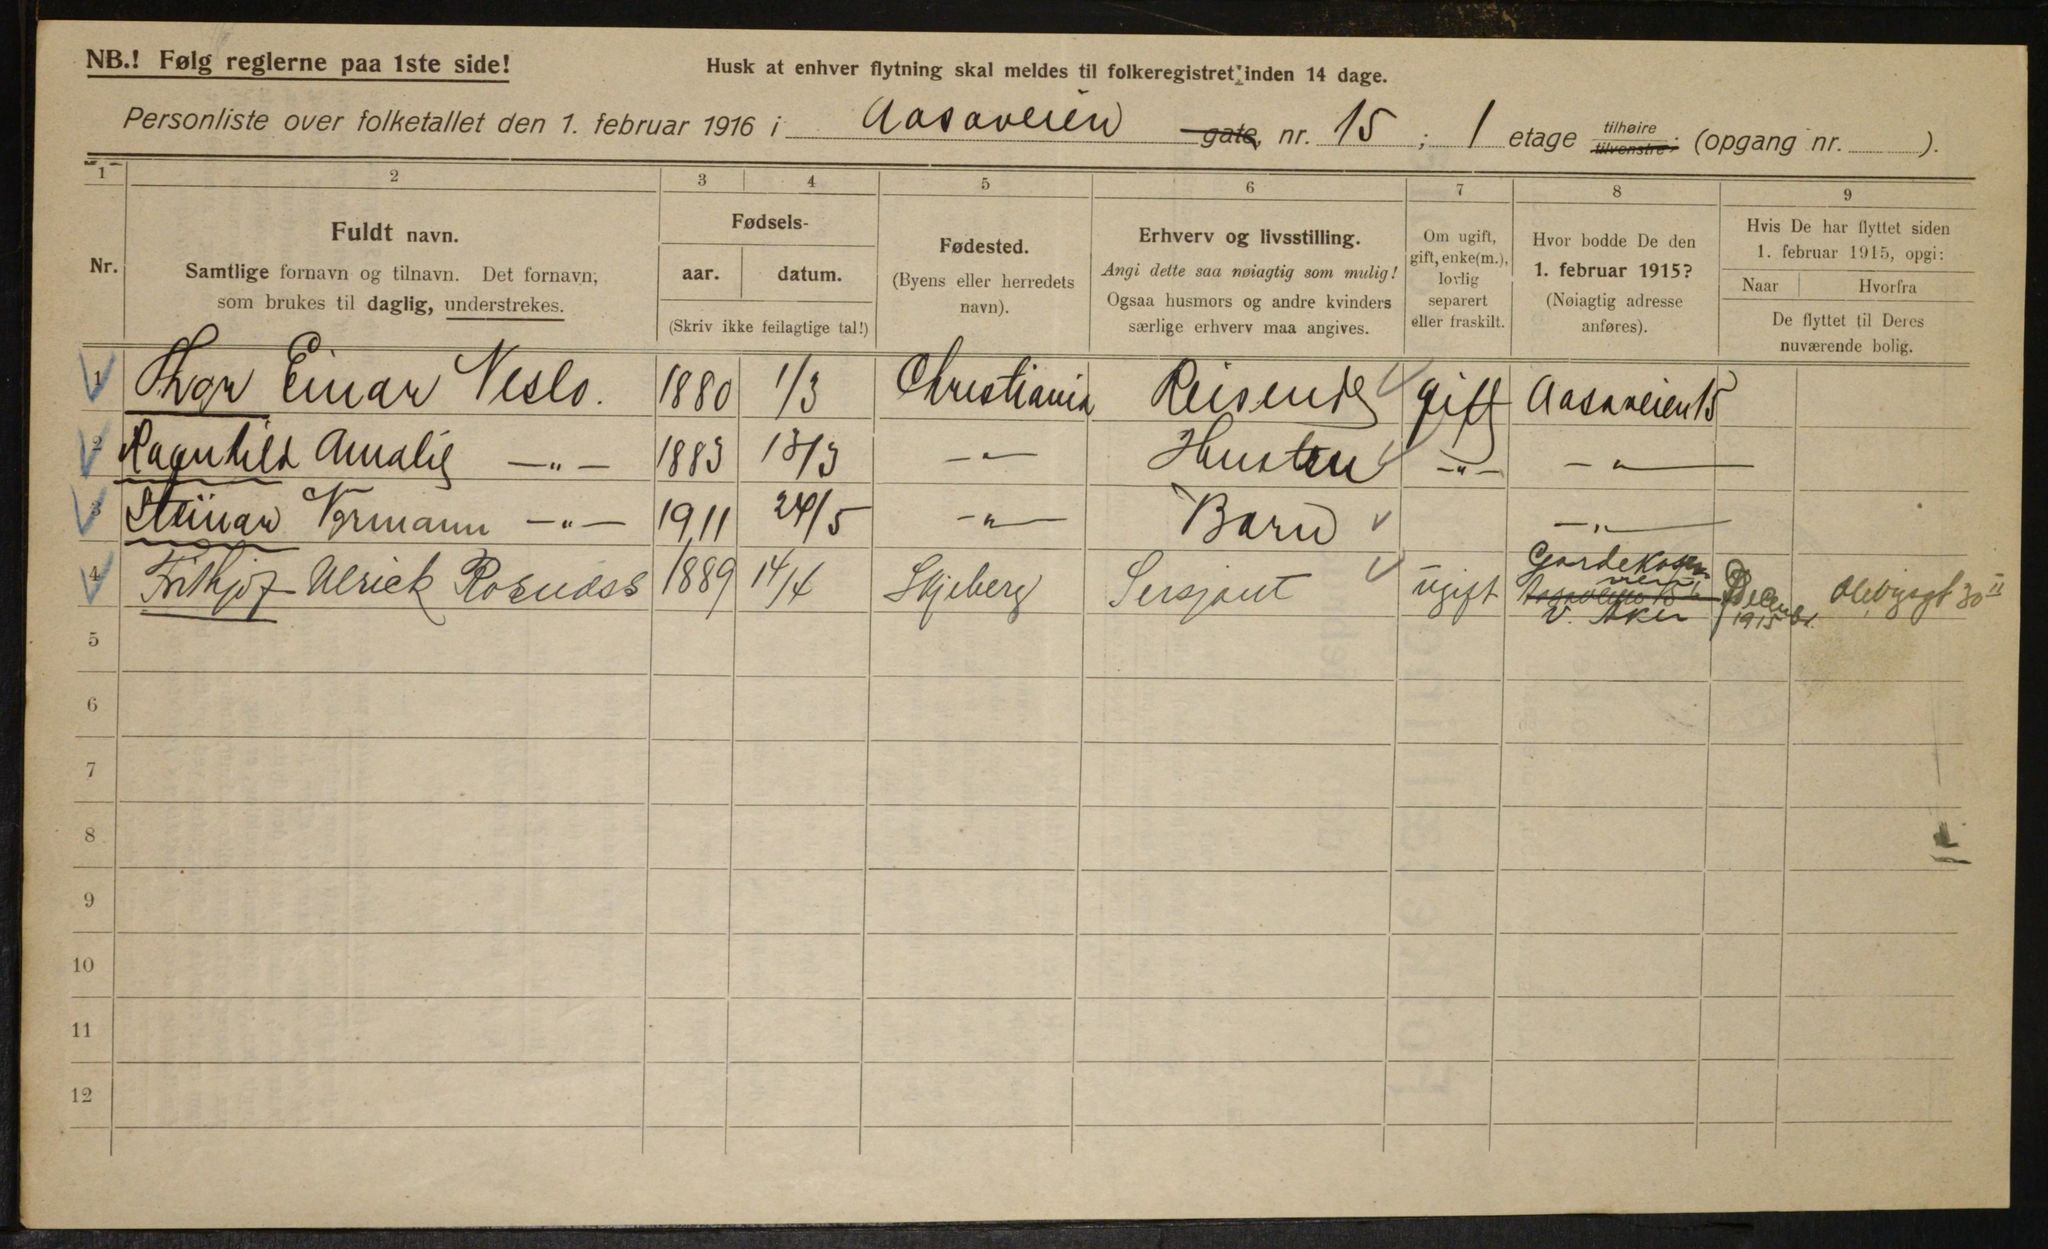 NB.! Følg reglerne paa 1ste side!
Husk at enhver flytning skal meldes til folkeregistret inden 14 dage.
Personliste over folketallet den 1. februar 1916 i Aasaveien gate, nr. 15 ; 1 etage tilhøire tilvenstre; (opgang nr. ).
1 2 3 4 5 6 7 8 9
Nr.
Fuldt navn.
Samtlige fornavn og tilnavn. Det fornavn, som brukes til daglig, understrekes.
Fødsels-
aar. datum.
(Skriv ikke feilagtige tal!)
Fødested.
(Byens eller herredets navn).
Erhverv og livsstilling.
Angi dette saa nøiagtig som mulig!
Ogsaa husmors og andre kvinders særlige erhverv maa angives.
Om ugift, gift, enke(m.), lovlig separert eller fraskilt.
Hvor bodde De den 1. februar 1915?
(Nøiagtig adresse anføres).
Hvis De har flyttet siden 1. februar 1915, opgi:
Naar Hvorfra
De flyttet til Deres nuværende bolig.
1 Thor Einar Neslo. 1880 1/3 Christiania Reisende gift Aasaveien 15
2 Ragnhild Amalie —„— 1883 13/3 —„— Hustru —„— —„—
3 Steinar Normann —„— 1911 24/5 —„— Barn —„—
4 Frithjof Ulrick Rosnæss 1889 14/4 Skjeberg Sersjant ugift Gardekasernen Aasaveien 15 V. Aker Decembr. 1915 30 II
5
6
7
8
9
10
11
12